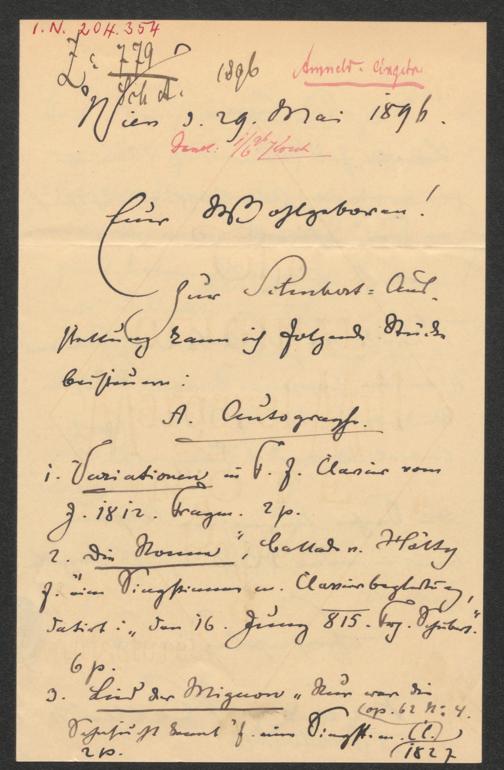 I.N. 204.354
Z: 779 1896
Wien d. 29. Mai 1896.
Euer Wohlgeboren!
Zur Schubert-Aus-
stellung kann ich folgende Stücke
beisteuern:
A. Autographe.
1. Variationen in F. f. Clavier vom
J. 1812. Fragm. 2 p.
2. "Die Nonne", Ballade v. Hölty
f. eine Singstimme m. Clavierbegleitung,
datirt: "den 16. Juny 815. Frz. Schubert."
6 p.
3. Lied der Mignon "Nur wer die
(op. 62 No. 4.
Sehnsucht kennt" f. eine Singst. m. Cl.)
2 p. (1827